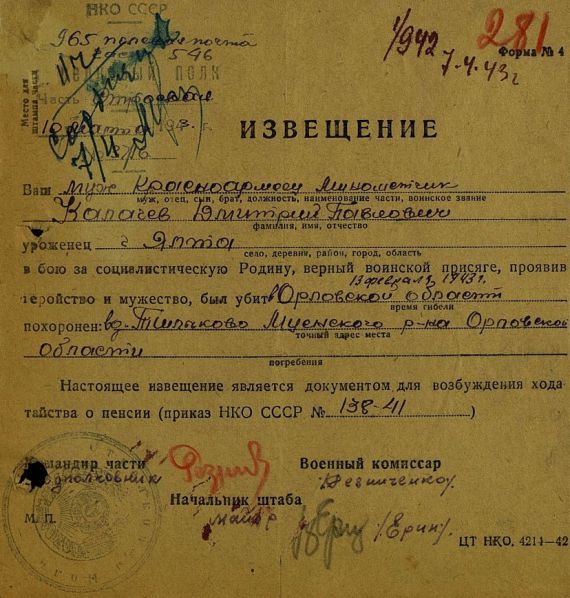 НКО СССР
965 полевая почта
546
полк
Часть
Место для штампа части
10 марта 1943 г.
7/4
1/942
7.4.43г
281
Форма № 4
ИЗВЕЩЕНИЕ
Ваш муж Красноармеец Минометчик
муж, отец, сын, брат, должность, наименование части, воинское звание
Калачев Дмитрий Павлович
фамилия, имя, отчество
уроженец г Ялта
село, деревня, район, город, область
в бою за социалистическую Родину, верный воинской присяге, проявив
13 февраля 1943г.
геройство и мужество, был убит в Орловской области
время гибели
похоронен: в д. Мценского р-на Орловской
точный адрес места
области
погребения
Настоящее извещение является документом для возбуждения хода
тайства о пенсии (приказ НКО СССР № 138-41)
Командир части
Военный комиссар
подполковник
Резниченко/
Начальник штаба
М. П.
майор
/Ерин/
ЦТ НКО. 4214—42